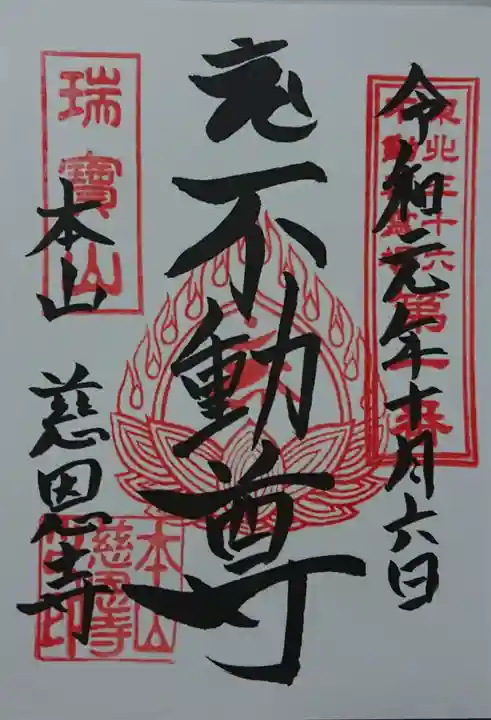 令和元年十月六日
東北三十六
不動尊霊場
第一番
荒不動尊
瑞寶山
本山
慈恩寺
本山
慈恩寺